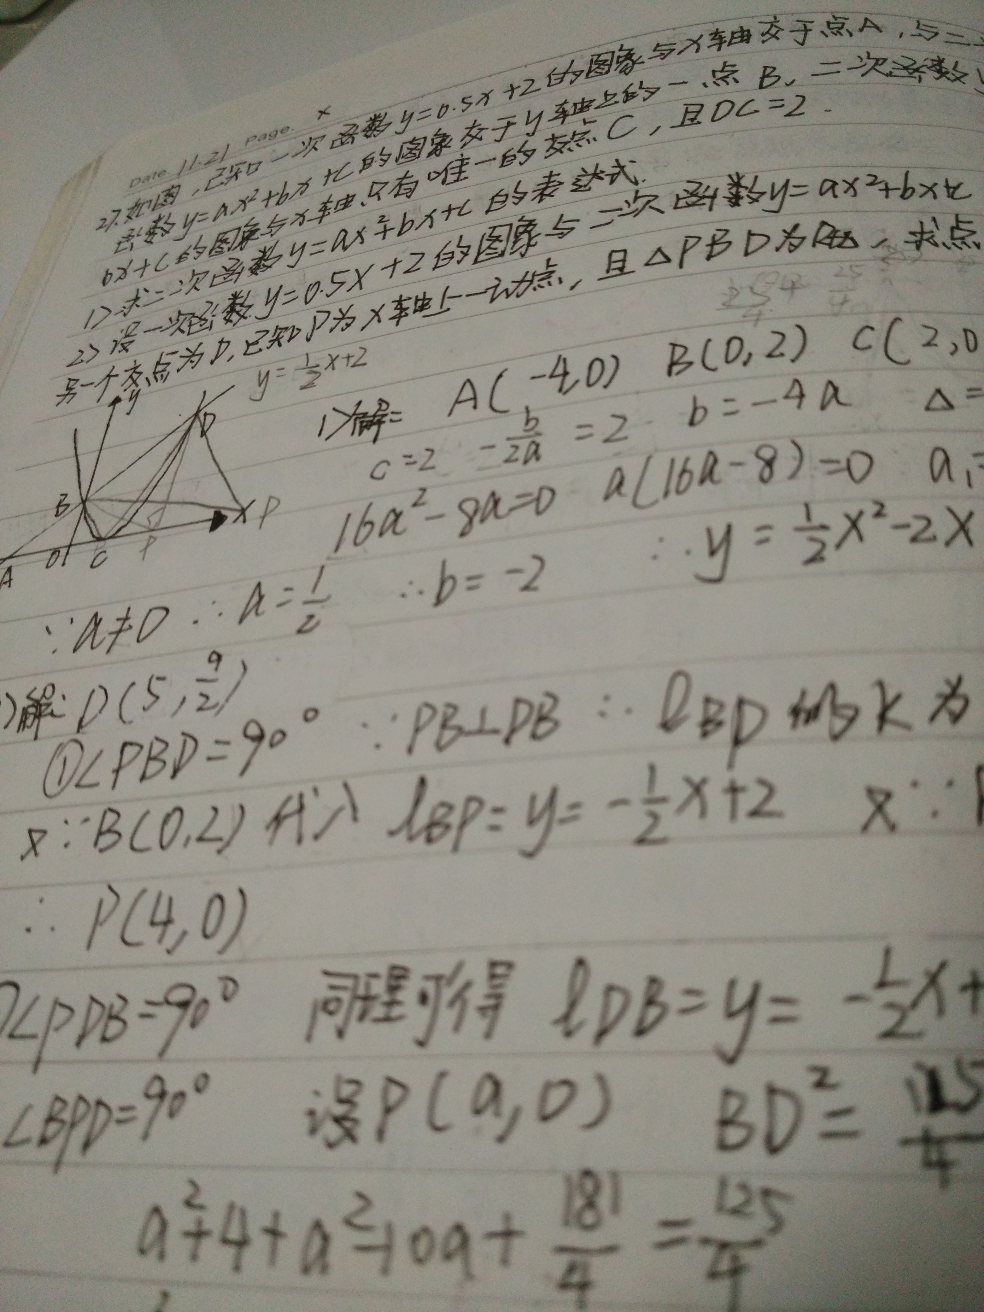 Date 11.21 Page. x
27.如图,已知一次函数y=0.5x+2的图象与x轴交于点A,与二次
函数y=ax²+bx+c的图象交于y轴上的一点B,二次函数y
bx+c的图象与x轴只有唯一的交点C,且OC=2.
1>求二次函数y=ax²+bx+c的表达式.
2>设一次函数y=0.5x+2的图象与二次函数y=ax²+bx+c
另一个交点为D,已知P为x轴上一动点,且△PBD为Rt△,求点
y=½x+2
y
D
B
x P
A O C P
1>解= A(-4,0) B(0,2) C(2,0
c=2 -b/2a=2 b=-4a △=
16a²-8a=0 a(16a-8)=0 a₁=
∵a≠0 ∴a=1/2 ∴b=-2 ∴y=½x²-2x
>解: D(5,9/2)
①∠PBD=90° ∵PB⊥DB ∴lBD的k为
又∵B(0,2)代入 lBP=y=-½x+2 又∵
∴P(4,0)
∠PDB=90° 同理可得 lDB=y=-½x+
∠BPD=90° 设P(a,0) BD²=125/4
a²+4+a²-10a+181/4=125/4